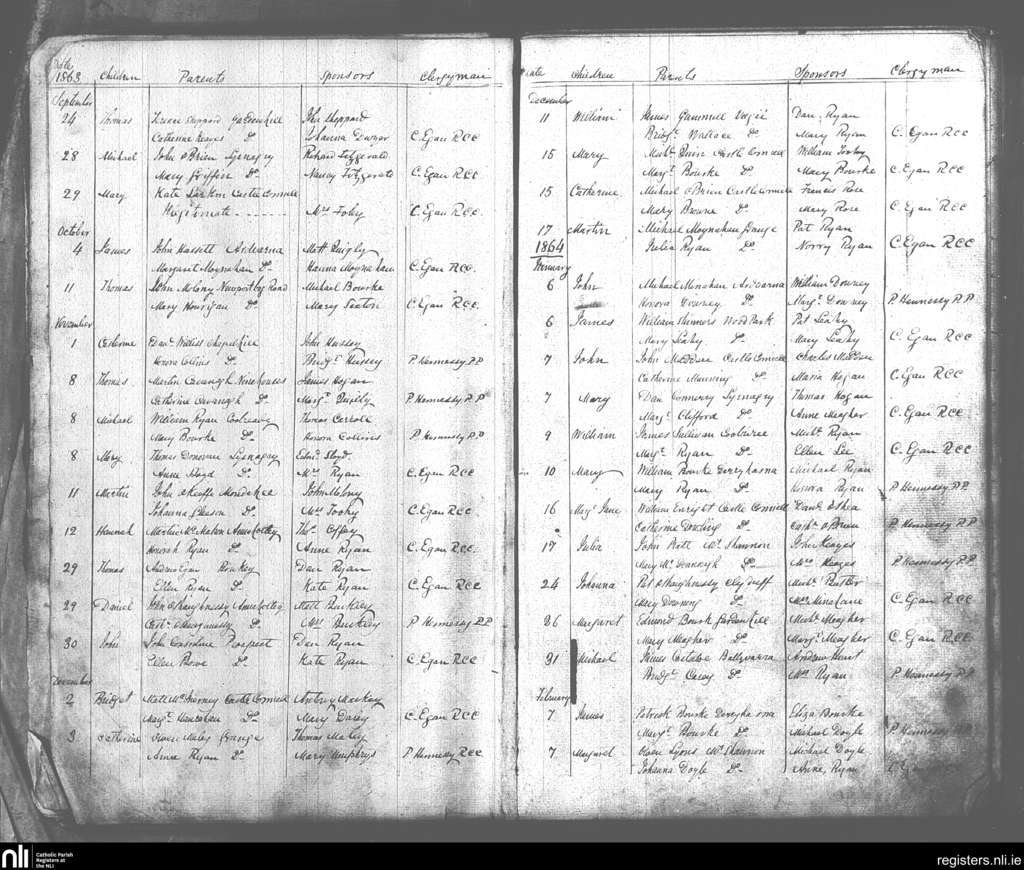 Date
1863 Children Parents Sponsors Clergyman
September
24 Thomas Sheppard Garden hill John Sheppard
Catherine Do Johanna C. Egan RCC
28 Michael John O'Brien Lisnagry Richard Fitzgerald
Mary Griffin Do Nancy Fitzgerald C. Egan RCC
29 Mary Kate Larkin Castle Connell
Illegitimate - - - - - - - Mrs Foley C. Egan RCC
October
4 James John Hassett Ardvarna Matt Quigley
Margaret Moynahan Do Hanna Moynahan C. Egan RCC.
11 Thomas John Molony Newport by Road Michael Bourke
Mary Hourigan Do Mary Sexton C. Egan RCC.
November
1 Catherine Edwd. John Hussey
Honora Collins Do Bridgt. Hussey P. Hennessy P.P
8 Thomas Martin Cavanagh Ninehouses James Hogan
Catherine Cavanagh Do Margt. Quigley P. Hennessy P.P
8 Michael William Ryan Thomas Carroll
Mary Bourke Do Honora Collins P. Hennessy P.P
8 Mary Thomas Donovan Lisnagry Edwd. Lloyd
Anne Lloyd Do Mrs Ryan C. Egan RCC
11 Martin John O'Keeffe John Molony
Johanna Gleeson Do Mrs C. Egan RCC
12 Hannah Martin McMahon Annacotty Thos. Coffey
Honorah Ryan Do Anne Ryan C. Egan RCC.
29 Thomas Andrew Egan Dan Ryan
Ellen Ryan Do Kate Ryan C. Egan RCC
29 Daniel John O'Shaughnessy Annacotty Matt Buckley
Do Mrs Buckley P. Hennessy P.P
30 John John Considine Prospect Dan Ryan
Ellen Do Kate Ryan C. Egan RCC
December
2 Bridget Matt Castle Connell Mackay
Margt. Hanrahan Do Mary C. Egan RCC
3 Catherine Owen Maley Grange Thomas Maley
Anne Ryan Do Mary Umphrys P. Hennessy RCC
Date Children Parents Sponsors Clergyman
December
11 William James Gammell Dan. Ryan
Bridgt. Wallace Do Mary Ryan C. Egan RCC
15 Mary Michl. Quin Castle Connell William
Margt. Bourke Do Mary Bourke C. Egan RCC
15 Catherine Michael O'Brien Castle Connell Francis Rose
Mary Browne Do Mary Rose C. Egan RCC
17 Martin Michael Moynahan Grange Pat Ryan
1864 Julia Ryan Do Norry Ryan C. Egan RCC
January
6 John Michael Minahan Ardvarna William Downey
Honora Downey Do Margt. Downey P. Hennessy P.P
6 James William Skinners Wood Park Pat Leahy
Mary Leahy Do Mary Leahy C. Egan RCC
7 John John Madden Castle Connell Charles Madden
Catherine Manning Do Maria Hogan C. Egan RCC
7 Mary Dan Connery Lisnagry Thomas Hogan
Margt. Clifford Do Anne Meagher C. Egan RCC
9 William James Sullivan Michl. Ryan
Margt. Ryan Do Ellen Lee C. Egan RCC
10 Mary William Bourke Derryhasna Michael Ryan
Mary Ryan Do Honora Ryan P. Hennessy P.P.
16 Mary Jane William Enright Castle Connell David O'Shea
Catherine Dowling Do Cathe. O'Brien P. Hennessy P.P
17 Julia John Mt. Shannon John Keayes
Mary Do Mrs Keayes P. Hennessy P.P
24 Johanna Pat O'Shaughnessy Michl.
Mary Downey Do Mrs C. Egan RCC
26 Margaret Edmund Bourk Garden hill Michl. Meagher
Mary Meagher Do Margt. Meagher C. Egan RCC
31 Michael James Costeloe Ballyvarra Andrew Hunt
Bridgt. Casey Do Mrs Ryan P. Hennessy P.P
February
7 James Patrick Bourke Derryhasna Eliza Bourke
Margt. Bourke Do Michael Doyle P. Hennessy P.P
7 Margaret Owen Lyons Mt. Shannon Michael Doyle
Johanna Doyle Do Anne Ryan C. Egan
nli
Catholic Parish
Registers at
the NLI
registers.nli.ie